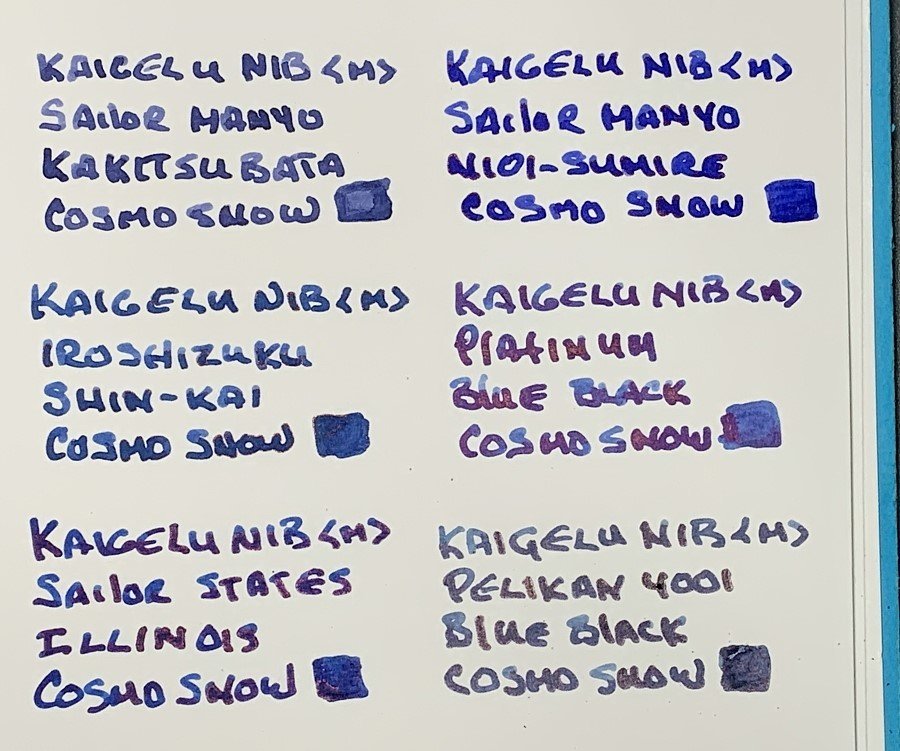 KAIGELU NIB <M>
SAILOR MANYO
KAKITSUBATA
COSMO SNOW
KAIGELU NIB <M>
SAILOR MANYO
NIOI-SUMIRE
COSMO SNOW
KAIGELU NIB <M>
IROSHIZUKU
SHIN-KAI
COSMO SNOW
KAIGELU NIB <M>
PLATINUM
BLUE BLACK
COSMO SNOW
KAIGELU NIB <M>
SAILOR STATES
ILLINOIS
COSMO SNOW
KAIGELU NIB <M>
PELIKAN 4001
BLUE BLACK
COSMO SNOW